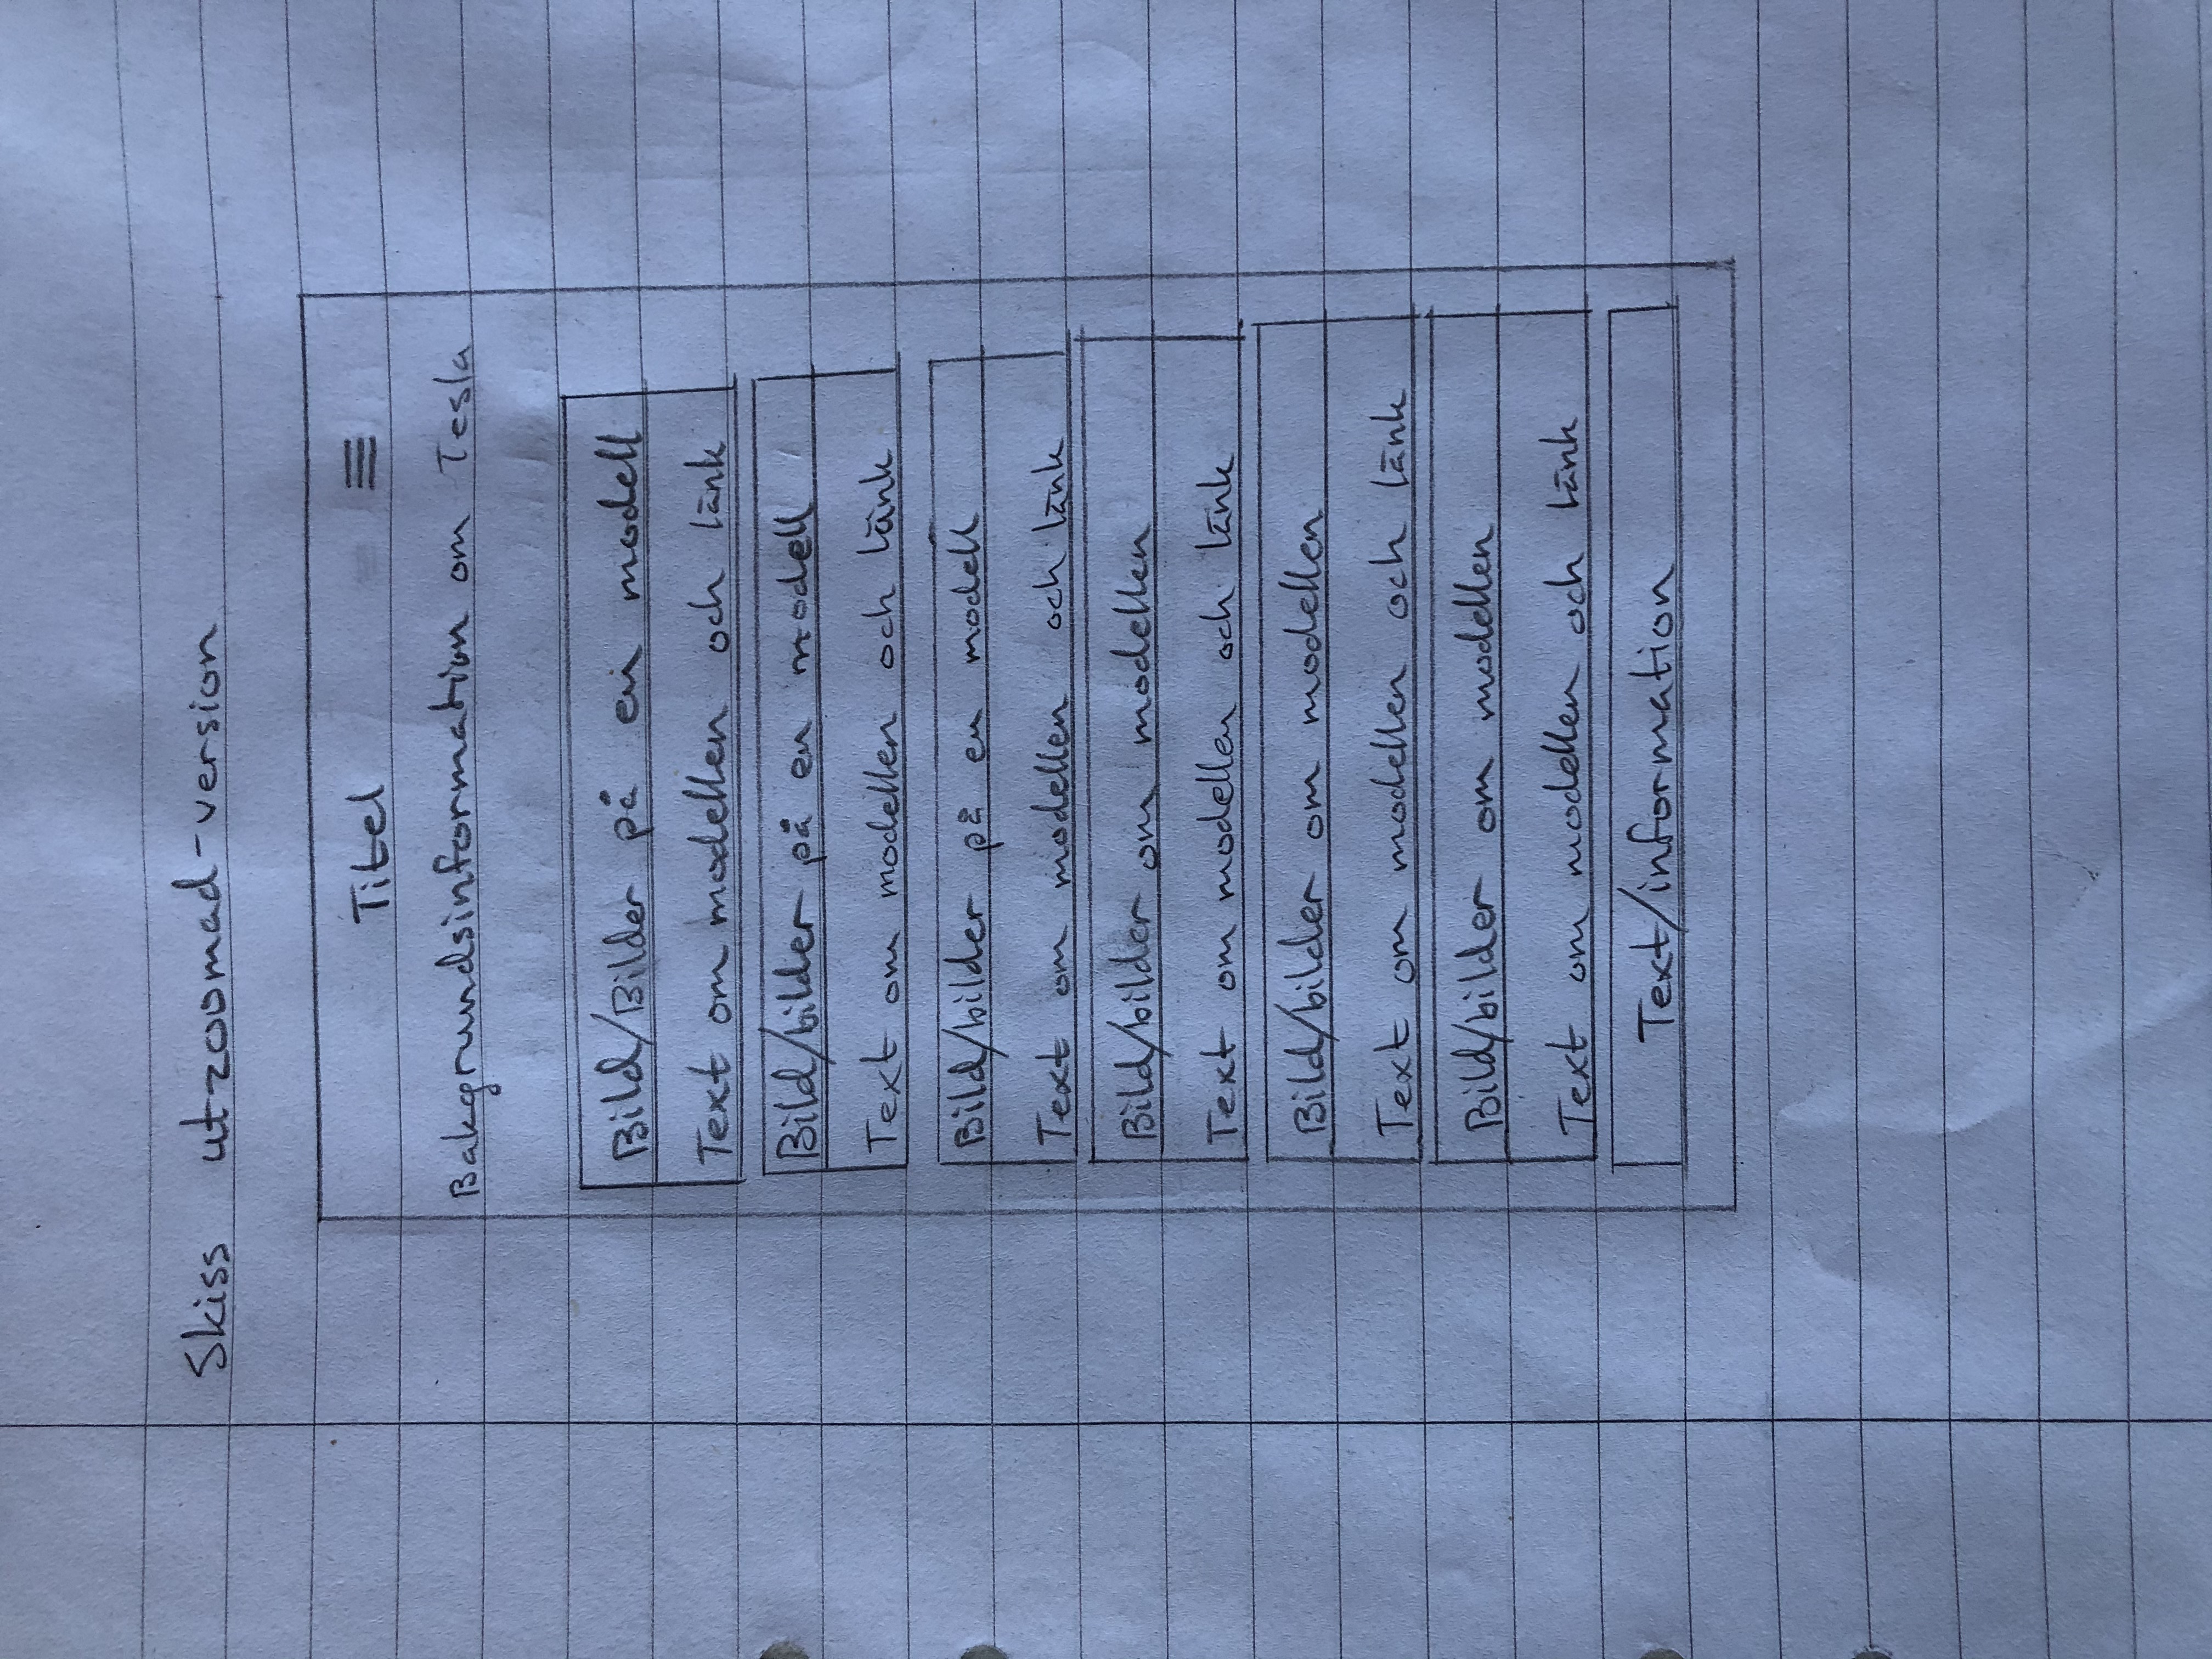 Skiss utzoomad-version
Titel
Bakgrundsinformation om Tesla
Bild/Bilder på en modell
Text om modellen och länk
Bild/bilder på en modell
Text om modellen och länk
Bild/bilder på en modell
Text om modellen och länk
Bild/bilder om modellen
Text om modellen och länk
Bild/bilder om modellen
Text om modellen och länk
Bild/bilder om modellen
Text om modellen och länk
Text/information